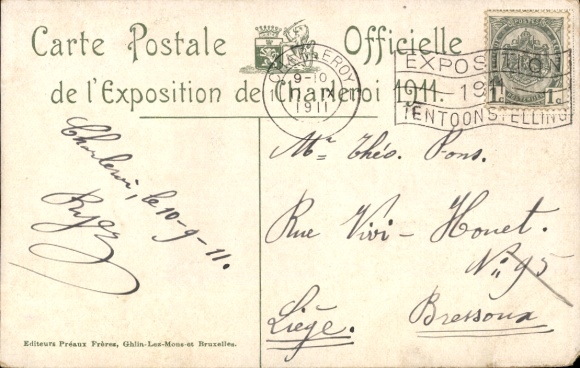 Carte Postale Officielle
de l'Exposition de Charleroi 1911.
CHARLEROY
9-10
1911
EXPOSITION
1911
TENTOONSTELLING
1c. 1c.
Charleroi, le 10-9-11.
Mr. Théo. Pons.
Rue Vivi-Houet.
No 95
Bressoux
Liège.
Editeurs Préaux Frères, Ghlin-Lez-Mons et Bruxelles.